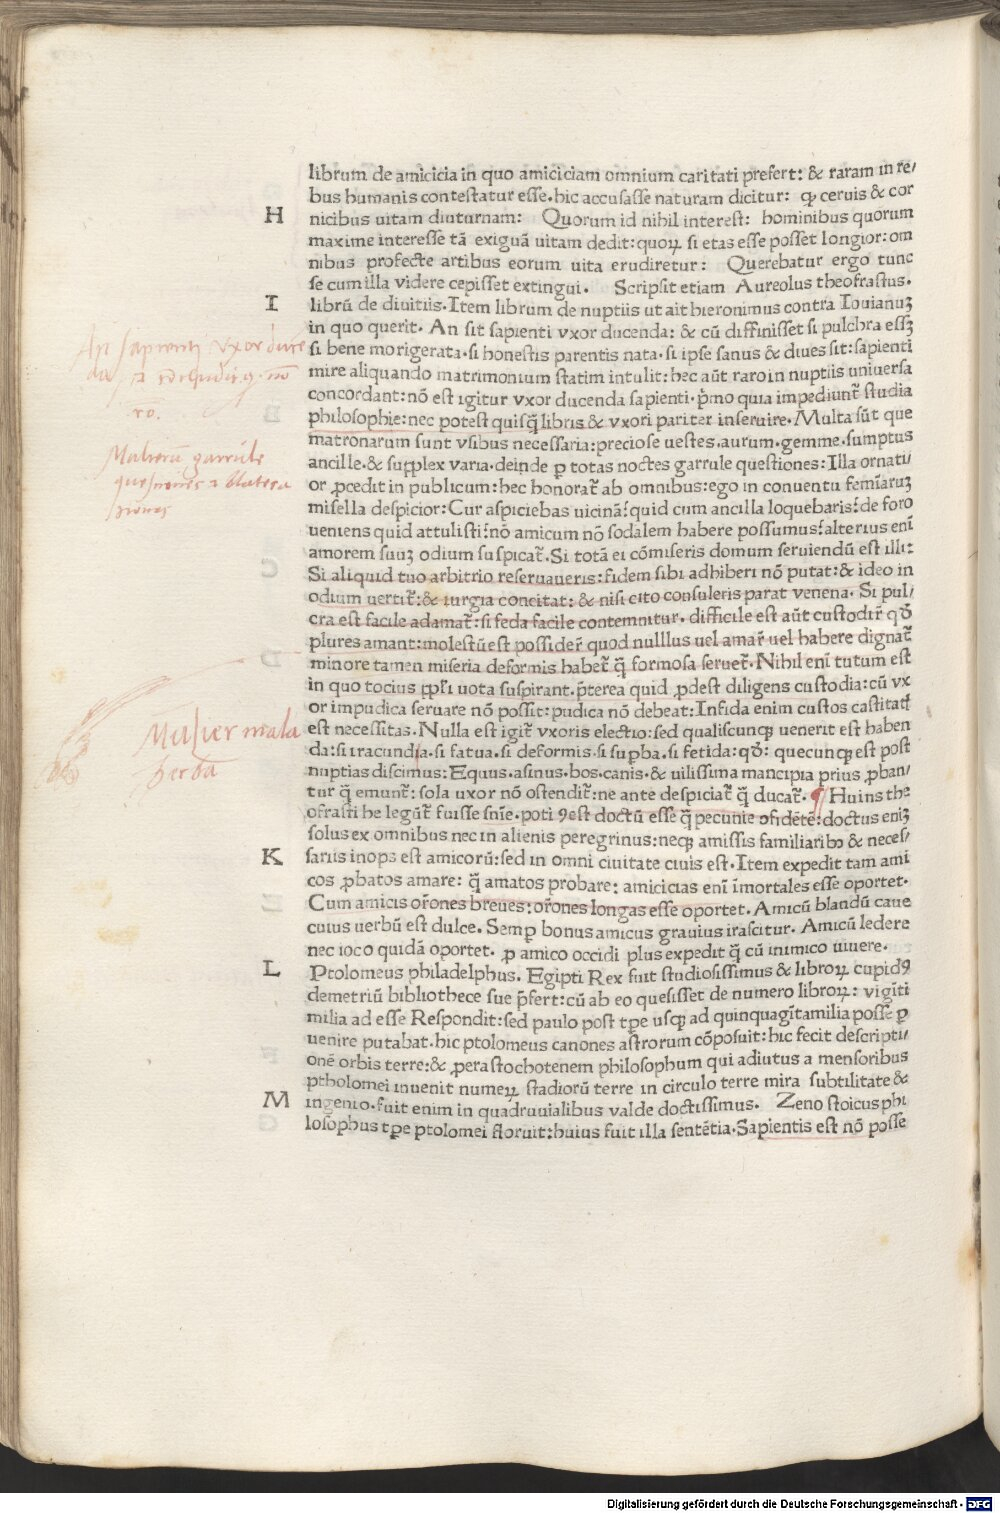 librum de amicicia in quo amiciciam omnium caritati prefert: & raram in re/
bus humanis contestatur esse. hic accusasse naturam dicitur: ꝙ ceruis & cor
H
nicibus uitam diuturnam: Quorum id nihil interest: hominibus quorum
maxime interesse tā exiguā uitam dedit: quoꝝ si etas esse posset longior: om
nibus profecte artibus eorum uita erudiretur: Querebatur ergo tunc
se cum illa videre cepisset extingui. Scripsit etiam Aureolus theofrastus.
I
librū de diuitiis. Item librum de nuptiis ut ait hieronimus contra Iouianuꝫ
in quo querit. An sit sapienti vxor ducenda: & cū diffinisset si pulchra essꝫ
si bene morigerata. si honestis parentis nata. si ipse sanus & diues sit: sapienti
mire aliquando matrimonium statim intulit: hec aūt raro in nuptiis uniuersa
concordant: nō est igitur vxor ducenda sapienti. p̄mo quia impediunt̄ studia
philosophie: nec potest quisq̄ libris & vxori pariter inseruire. Multa sūt que
matronarum sunt vsibus necessaria: preciose uestes. aurum. gemme. sumptus
ancille. & supplex varia. deinde ꝑ totas noctes garrule questiones: Illa ornati/
or ꝓcedit in publicum: hec honorat̄ ab omnibus: ego in conuentu femīaruꝫ
misella despicior: Cur aspiciebas uicinā: quid cum ancilla loquebaris: de foro
ueniens quid attulisti: nō amicum nō sodalem habere possumus: alterius enī
amorem suuꝫ odium suspicat̄. Si totā ei cōmiseris domum seruiendū est illi:
Si aliquid tuo arbitrio reseruaueris: fidem sibi adhiberi nō putat: & ideo in
odium uertit̄: & iurgia concitat: & nisi cito consuleris parat venena. Si pul/
cra est facile adamat̄: si feda facile contemnitur. difficile est aūt custodir̄ qđ
plures amant: molestū est possider̄ quod nulllus uel amar̄ uel habere dignat̄
minore tamen miseria deformis habet̄ q̄ formosa seruet̄. Nihil enī tutum est
in quo tocius ppl̄i uota suspirant. p̄terea quid ꝓdest diligens custodia: cū vx
or impudica seruare nō possit: pudica nō debeat: Infida enim custos castitatꝭ
est necessitas. Nulla est igit̄ vxoris electio: sed qualiscunqꝫ uenerit est haben
da: si iracundia. si fatua. si deformis. si suꝑba. si fetida: qđ: quecunqꝫ est post
nuptias discimus: Equus. asinus. bos. canis. & uilissima mancipia prius ꝓban/
tur q̄ emunt̄: sola uxor nō ostendit̄: ne ante despiciat̄ q̄ ducat̄. ¶ Huins the
ofrasti he legūt̄ fuisse snīe. poti ꝯest doctū esse q̄ pecunie ɔfidētē: doctus eniꝫ
solus ex omnibus nec in alienis peregrinus: neqꝫ amissis familiaribꝫ & neces/
K
sariis inops est amicorū: sed in omni ciuitate ciuis est. Item expedit tam ami
cos ꝓbatos amare: q̄ amatos probare: amicicias enī īmortales esse oportet.
Cum amicis or̄ones breues: or̄ones longas esse oportet. Amicū blandū caue
cuius uerbū est dulce. Semꝑ bonus amicus grauius irascitur. Amicū ledere
nec ioco quidā oportet. ꝓ amico occidi plus expedit q̄ cū inimico uiuere.
L
Ptolomeus philadelphus. Egipti Rex fuit studiosissimus & libroꝝ cupidꝰ
demetriū bibliothece sue p̄fert: cū ab eo quesisset de numero libroꝝ: vigīti
milia ad esse Respondit: sed paulo post tꝑe usqꝫ ad quinquagīta milia posse ꝑ
uenire putabat. hic ptolomeus canones astrorum cōposuit: hic fecit descripti/
onē orbis terre: & ꝑ erastochotenem philosophum qui adiutus a mensoribus
ptholomei inuenit numeꝝ stadiorū terre in circulo terre mira subtilitate &
M
ingenio. fuit enim in quadruuialibus valde doctissimus. Zeno stoicus phi
losophus tꝑe ptolomei floruit: huius fuit illa sentētia. Sapientis est nō posse
An sapienti vxor duce
da
Mulierū garrule
questiones
Mulier mala
herba
Digitalisierung gefördert durch die Deutsche Forschungsgemeinschaft - DFG